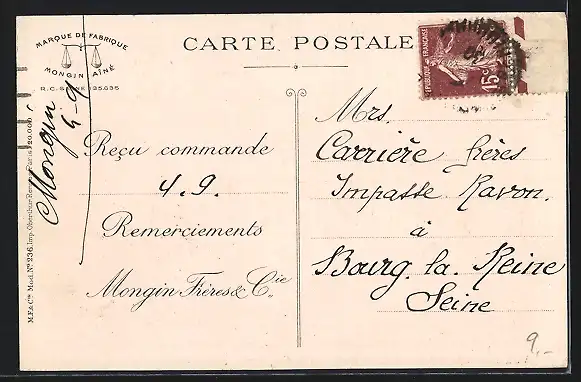 MARQUE DE FABRIQUE
MONGIN AÎNÉ
R.C. SEINE 135.635
CARTE POSTALE
RÉPUBLIQUE FRANÇAISE
15c
Mongin
4-9
Reçu commande
4.9.
Remerciements
Mongin Frères & Cie
Mrs.
Carrière frères
Impasse Ravon.
à
Bourg. la. Reine
Seine
M.F.& Cie Mod. No 236. Imp. Oberthur Rennes-Paris
9,-